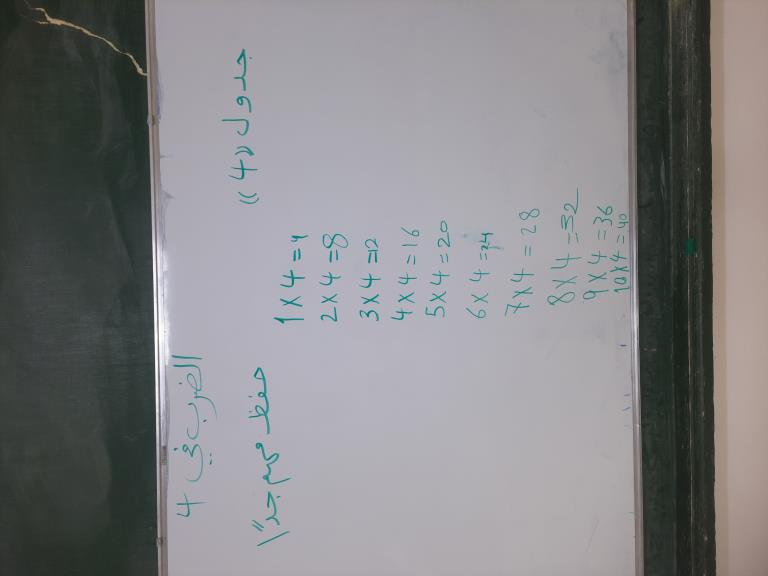 الضرب في 4
جدول «4»
حفظ مهم جداً
1 × 4 = 4
2 × 4 = 8
3 × 4 = 12
4 × 4 = 16
5 × 4 = 20
6 × 4 = 24
7 × 4 = 28
8 × 4 = 32
9 × 4 = 36
10 × 4 = 40